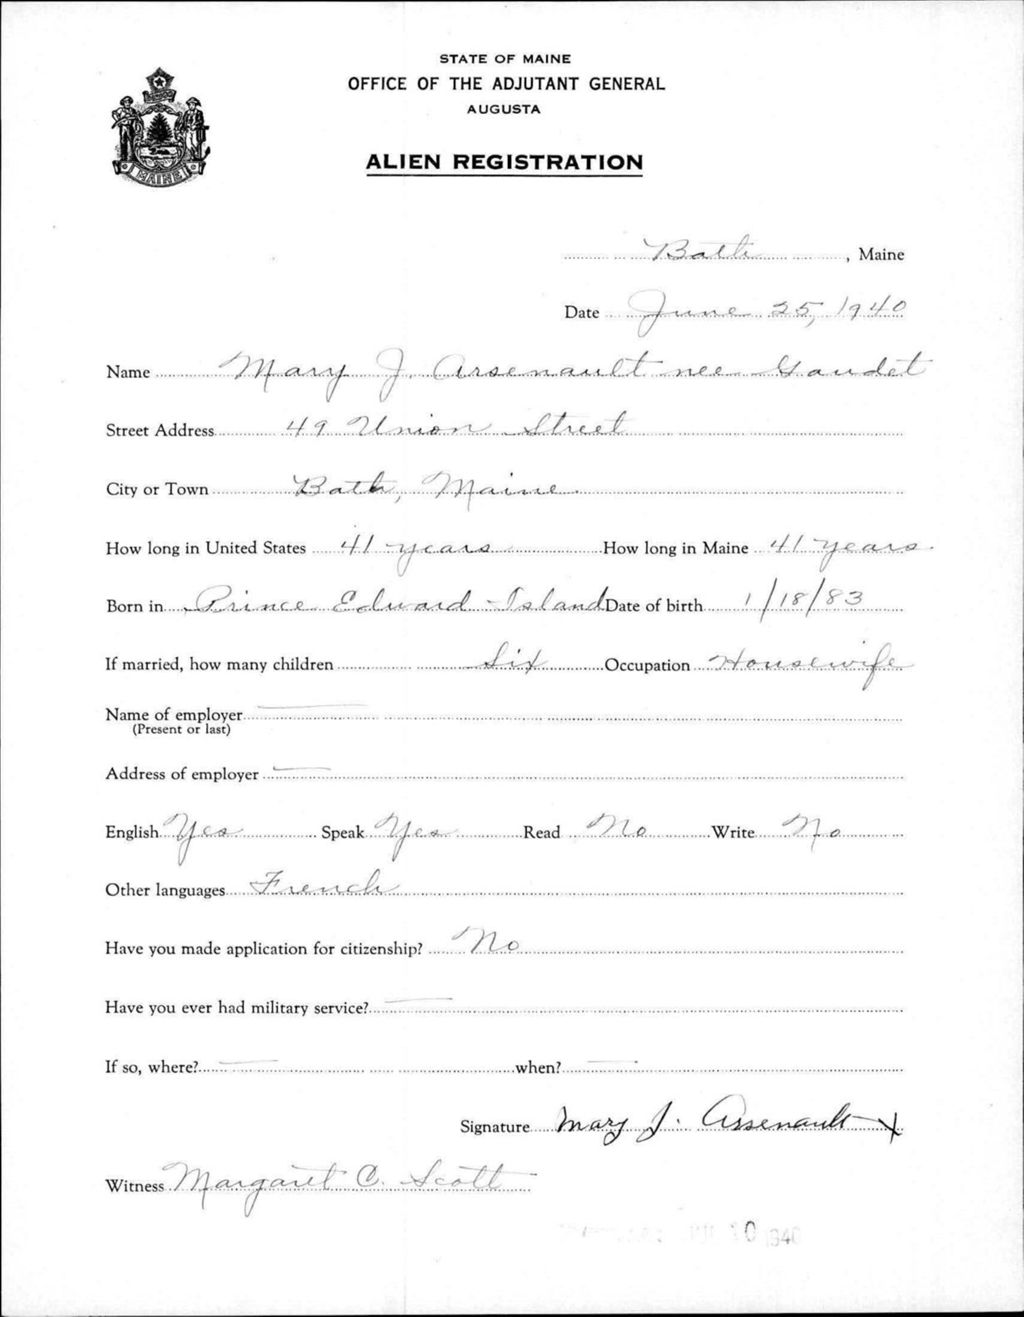 STATE OF MAINE
OFFICE OF THE ADJUTANT GENERAL
AUGUSTA
ALIEN REGISTRATION
MAINE
Bath, Maine
Date June 25, 1940
Name Mary J. Arsenault nee Gaudet
Street Address 49 Union Street
City or Town Bath, Maine
How long in United States 41 years How long in Maine 41 years.
Born in Prince Edward Island Date of birth 1/18/83
If married, how many children Six Occupation Housewife
Name of employer
(Present or last)
Address of employer
English Yes Speak Yes Read No Write No
Other languages French
Have you made application for citizenship? No
Have you ever had military service?
If so, where? when?
Signature Mary J. Arsenault X
Witness Margaret C. Scott
10 1940